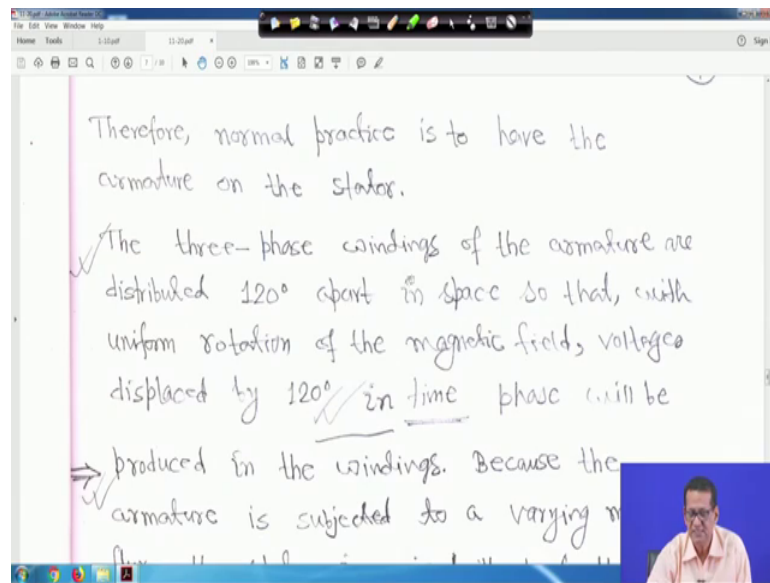 11-20.pdf - Adobe Acrobat Reader DC
File Edit View Window Help
Home Tools 1-10.pdf 11-20.pdf × Sign
7 /
Therefore, normal practice is to have the
armature on the stator.
The three-phase windings of the armature are
distributed 120° apart in space so that, with
uniform rotation of the magnetic field, voltages
displaced by 120° in time phase will be
produced in the windings. Because the
armature is subjected to a varying